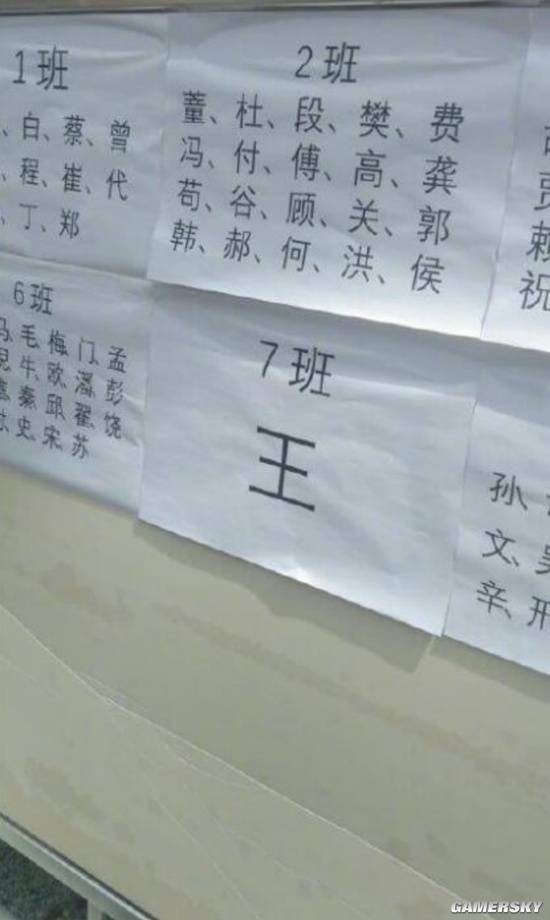 1班
、白、蔡、曾
、程、崔、代
、丁、郑
2班
董、杜、段、樊、费
冯、付、傅、高、龚
苟、谷、顾、关、郭
韩、郝、何、洪、侯
贾
赖
祝
6班
马、毛、梅、门、孟
倪、牛、欧、潘、彭
、秦、邱、翟、饶
、史、宋、苏
7班
王
孙、
文、吴
辛、邢
GAMERSKY